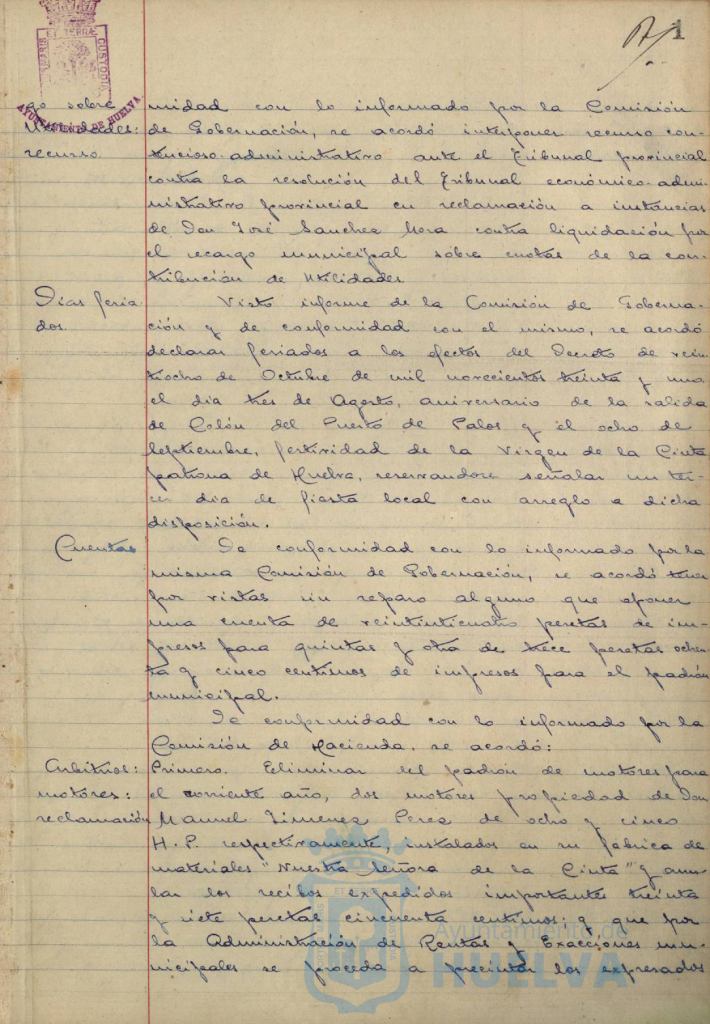 1
PORTUS MARIS ET TERRAE CUSTODIA
AYUNTAMIENTO DE HUELVA
go sobre
Utilidades:
recurso
midad con lo informado por la Comisión
de Gobernación, se acordó interponer recurso con-
tencioso-administrativo ante el Tribunal provincial
contra la resolución del Tribunal económico-admi-
nistrativo provincial en reclamación a instancias
de Don José Sanchez Mora contra liquidación por
el recargo municipal sobre cuotas de la con-
tribución de Utilidades
Dias feria-
dos.
Visto informe de la Comisión de Goberna-
ción y de conformidad con el mismo, se acordó
declarar feriados a los efectos del Decreto de vein-
tiocho de Octubre de mil novecientos treinta y uno
el dia tres de Agosto, aniversario de la salida
de Colón del Puerto de Palos y el ocho de
Septiembre, festividad de la Virgen de la Cinta
patrona de Huelva, reservandose señalar un ter-
cer dia de fiesta local con arreglo a dicha
disposición.
Cuentas
De conformidad con lo informado por la
misma Comisión de Gobernación, se acordó tener
por vistas sin reparo alguno que oponer
una cuenta de veinticuatro pesetas de im-
presos para quintas y otra de trece pesetas ochen-
ta y cinco centimos de impresos para el padrón
municipal.
De conformidad con lo informado por la
Comisión de Hacienda, se acordó:
Arbitrios:
motores:
reclamación
Primero. Eliminar del padrón de motores para
el corriente año, dos motores propiedad de Don
Manuel Jimenez Perez de ocho y cinco
H.P. respectivamente, instalados en su fabrica de
materiales "Nuestra Señora de la Cinta" y anu-
lar los recibos expedidos importantes treinta
y siete pesetas cincuenta centimos; y que por
la Administración de Rentas y Exacciones mu-
nicipales se proceda a precintar los expresados
Ayuntamiento de
HUELVA